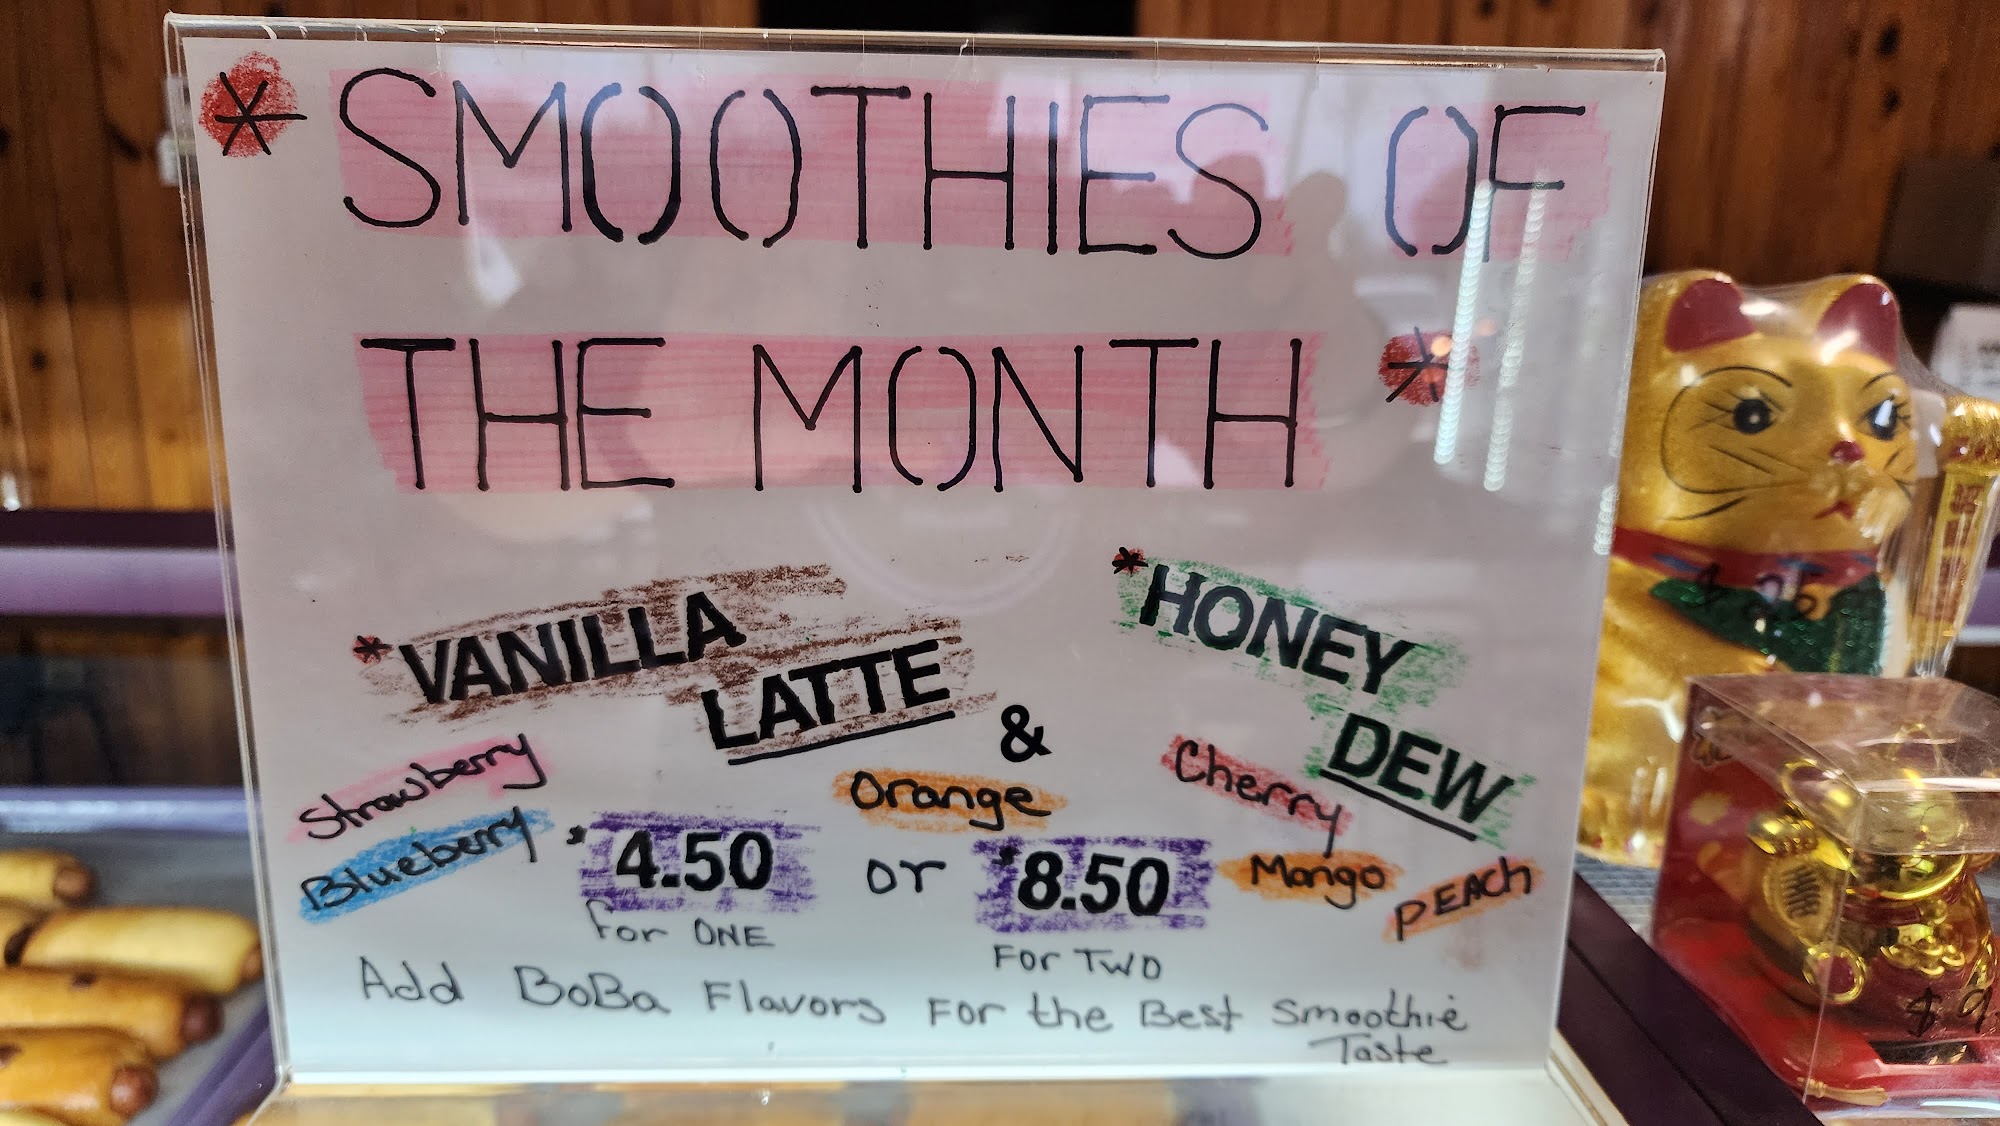 * SMOOTHIES OF
THE MONTH *
* VANILLA
LATTE
&
* HONEY
DEW
Strawberry
Blueberry
Orange
Cherry
Mango
PEACH
4.50
For ONE
or
8.50
For TWO
Add BoBa Flavors For the Best Smoothie
Taste